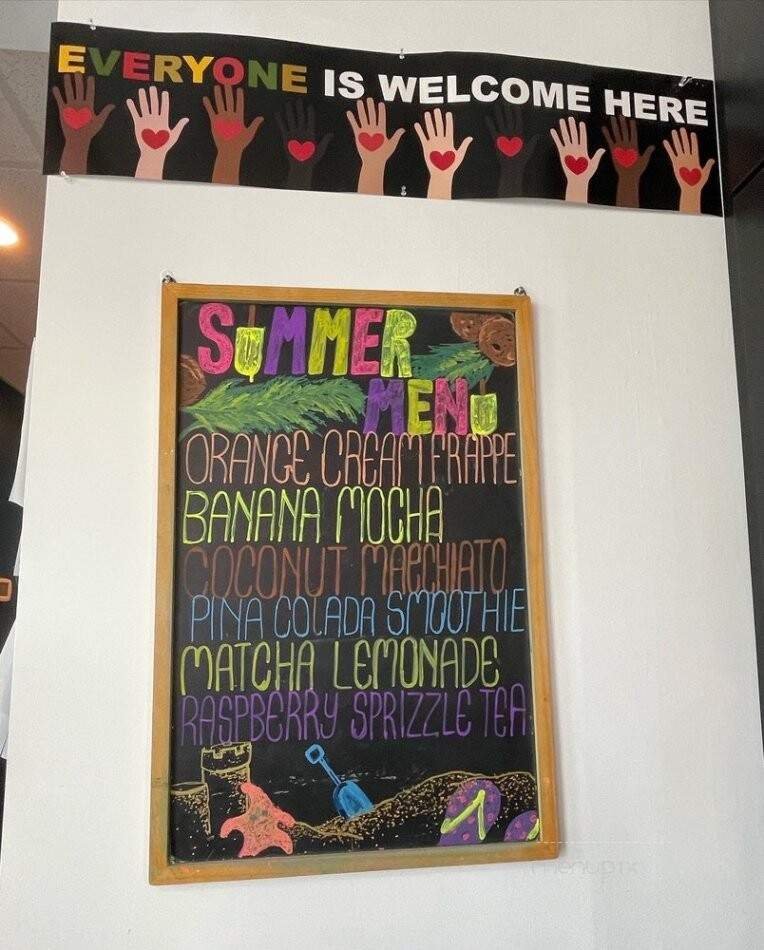 EVERYONE IS WELCOME HERE
SUMMER
MENU
ORANGE CREAM FRAPPE
BANANA MOCHA
COCONUT MACCHIATO
PINA COLADA SMOOTHIE
MATCHA LEMONADE
RASPBERRY SPRIZZLE TEA
menupix